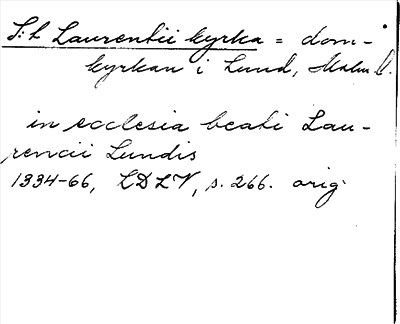 S:t Laurentii kyrka = dom-
kyrkan i Lund, Malm l.
in ecclesia beati Lau-
rencii Lundis
1334-66, LDLV, s. 266. orig.